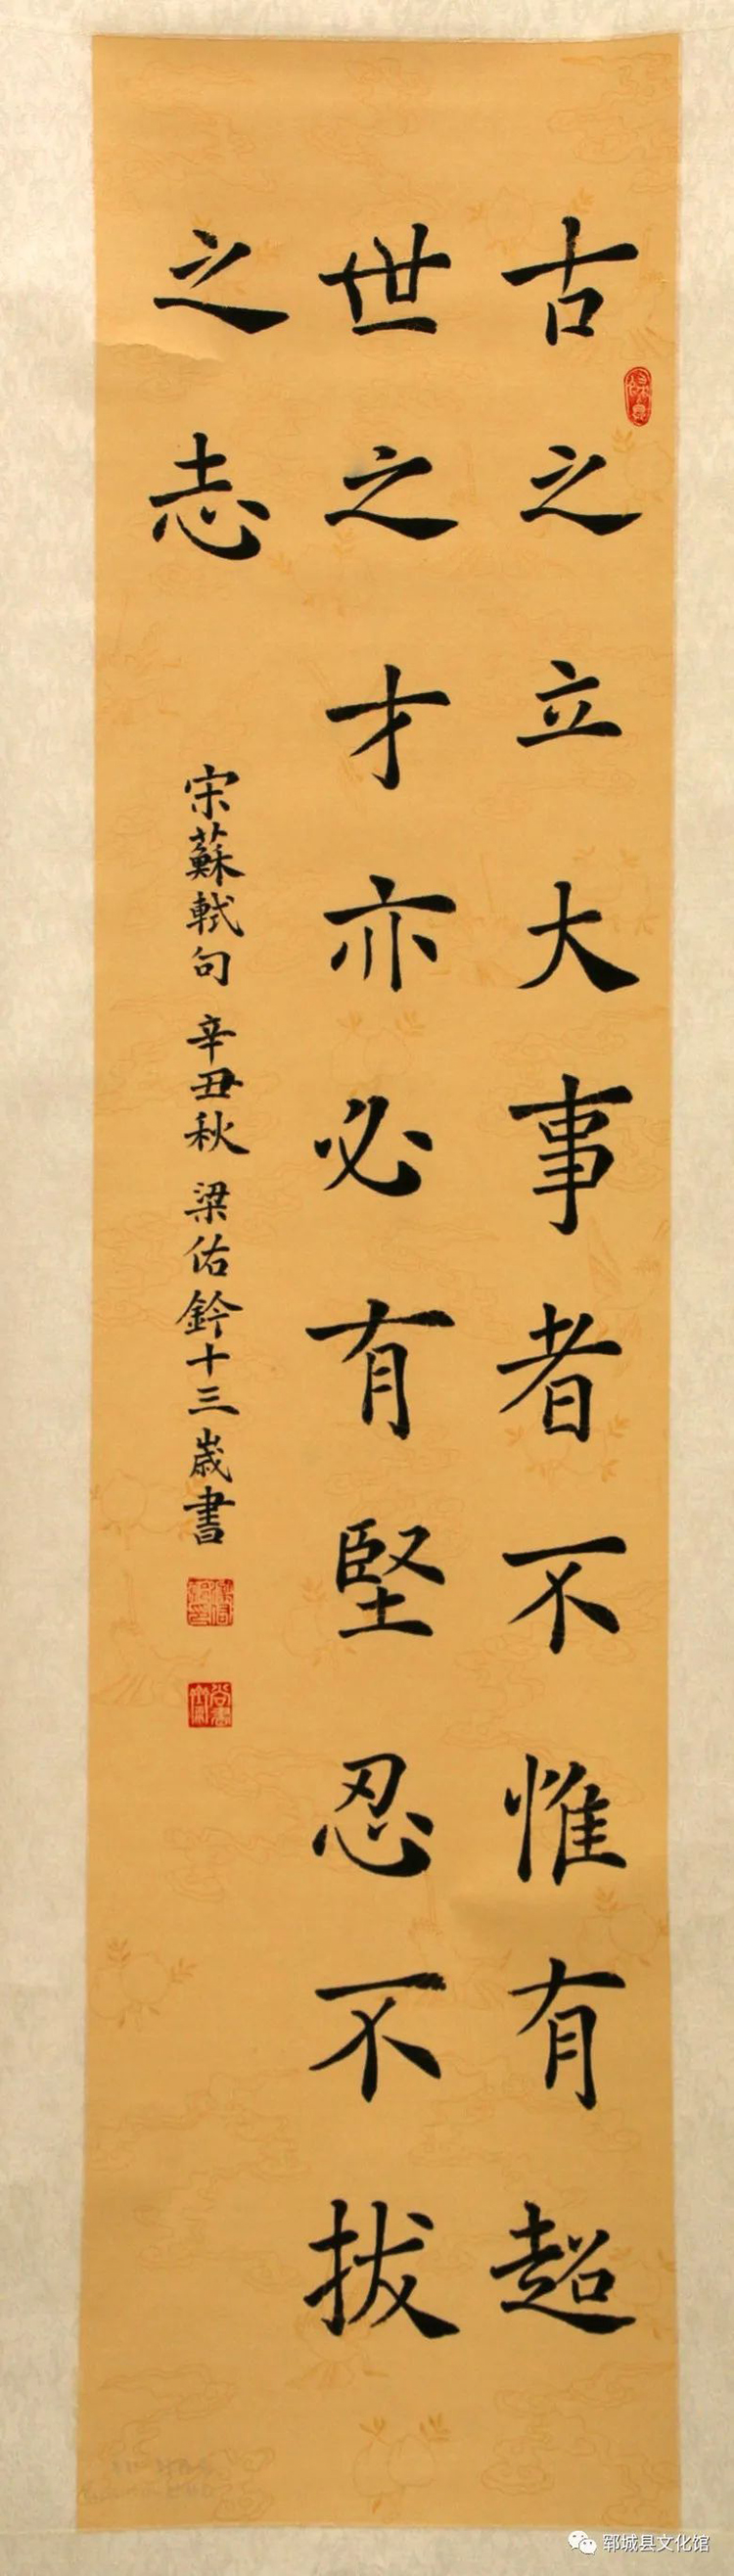 古之立大事者不惟有超
世之才亦必有堅忍不拔
之志
宋蘇軾句 辛丑秋 梁佑鈐十三歲書
郓城县文化馆